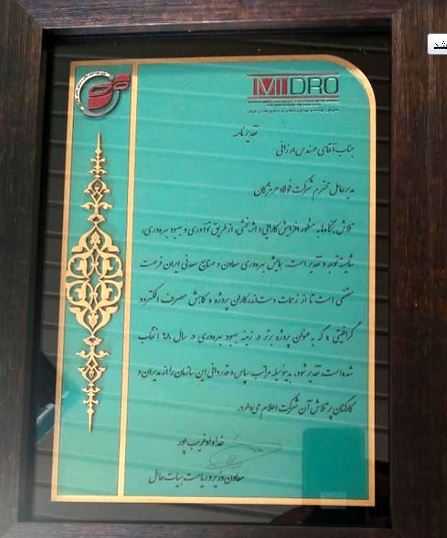 IMIDRO
تقدیرنامه
جناب آقای مهندس ارزانی
مدیرعامل محترم شرکت فولاد هرمزگان
تلاش بنگاه‌ها به منظور افزایش کارایی و اثربخشی، از طریق نوآوری و بهبود بهره‌وری،
شایسته توجه و تقدیر است. همایش بهره‌وری معادن و صنایع معدنی ایران فرصت
مغتنمی است تا از زحمات دست‌اندرکاران پروژه و کاهش مصرف الکترود
گرافیتی و که به‌عنوان پروژه برتر در زمینه بهبود بهره‌وری در سال ۹۸ انتخاب
شده است، تقدیر شود. بدینوسیله مراتب سپاس و قدردانی این سازمان را از مدیران و
کارکنان پرتلاش آن شرکت اعلام می‌دارد.
خداداد غریب پور
معاون وزیر و ریاست هیات عامل